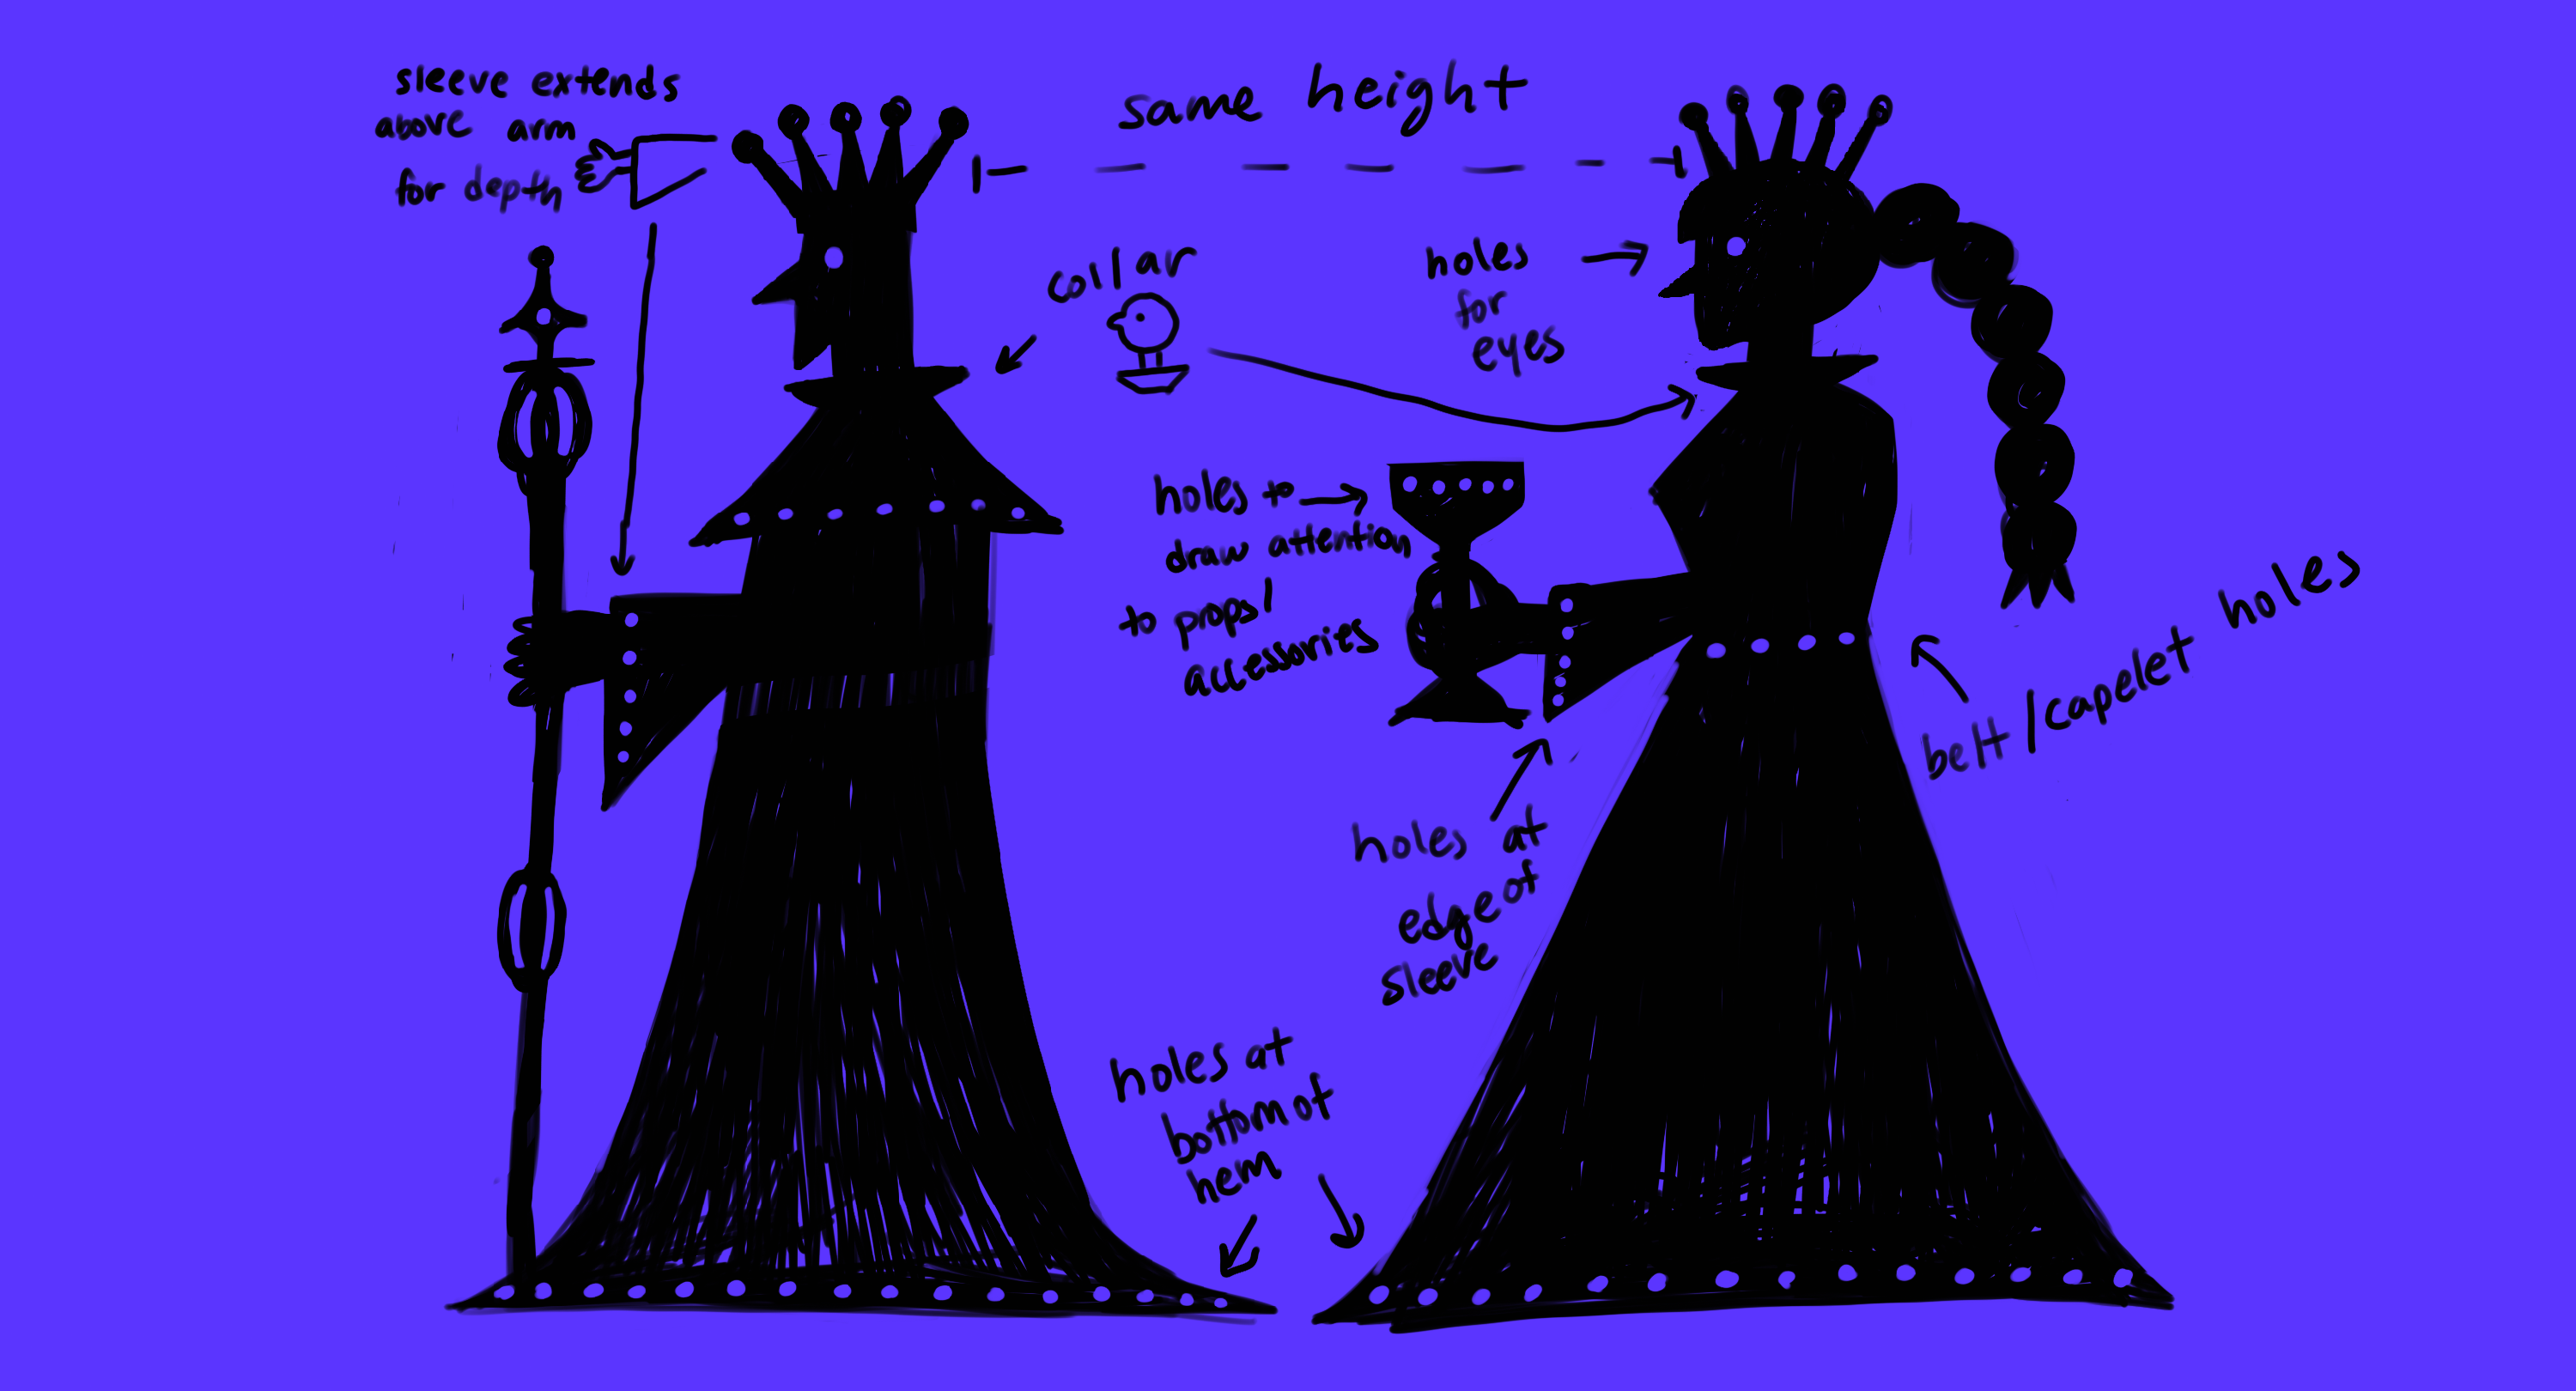 sleeve extends
above arm
for depth
same height
collar
holes
for
eyes
holes to
draw attention
to props/
accessories
belt/capelet holes
holes at
edge of
sleeve
holes at
bottom of
hem